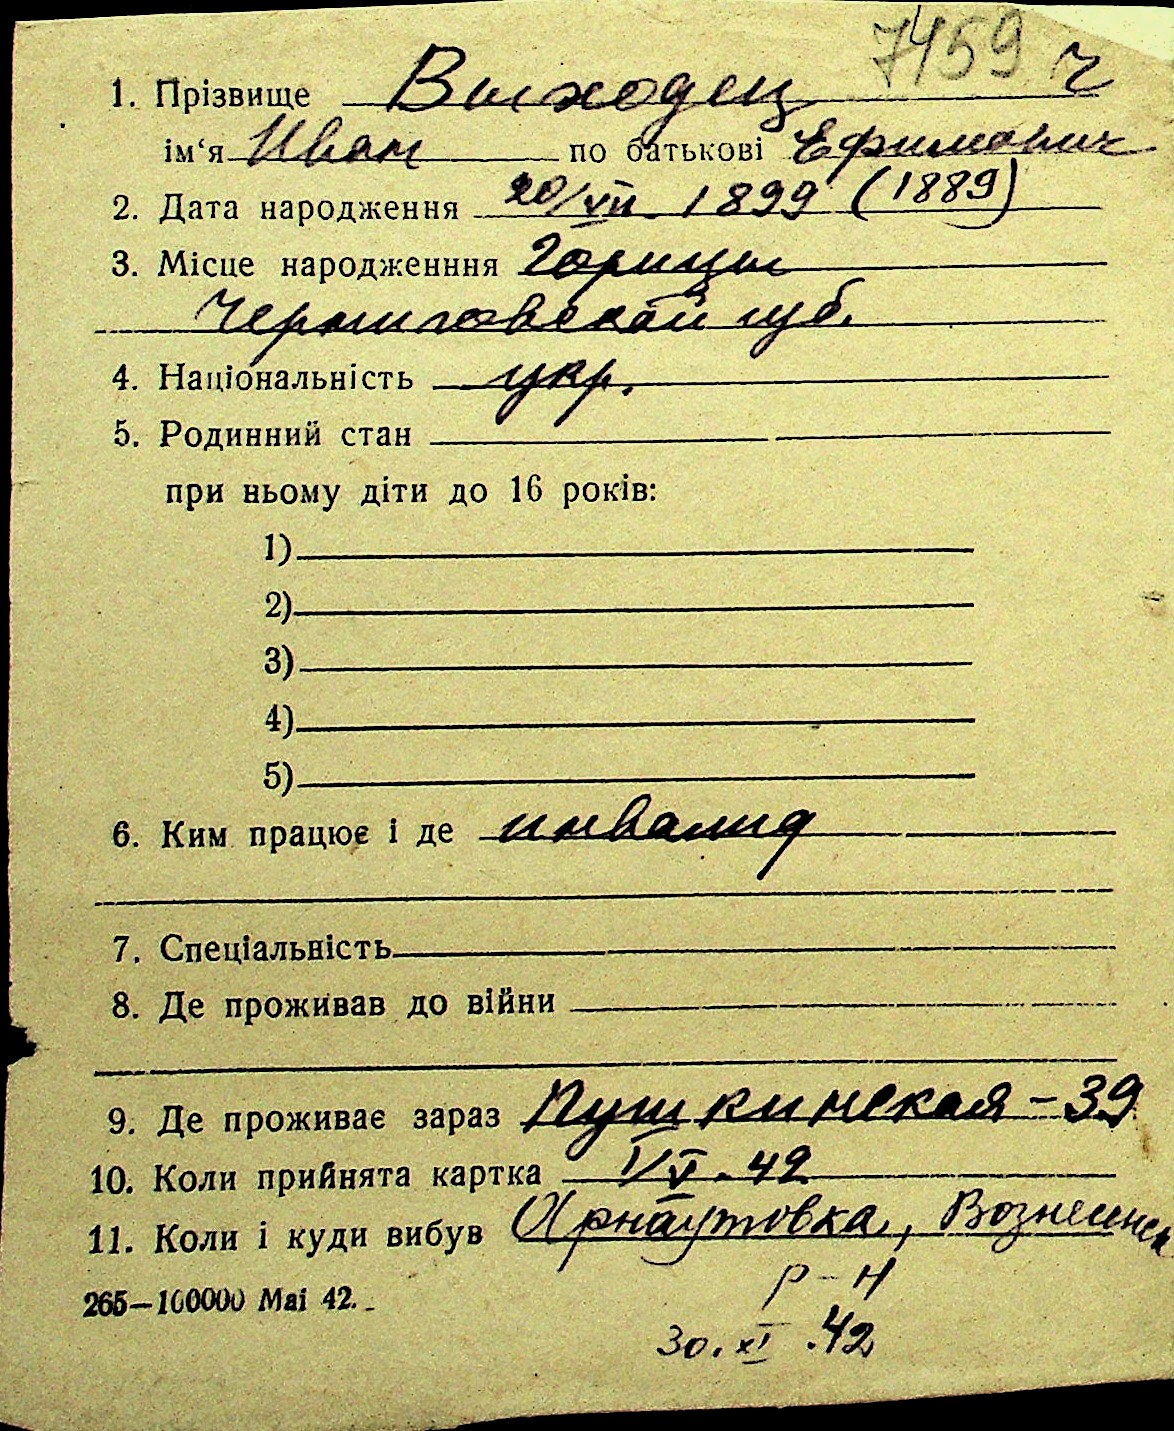 7459 ч
1. Прізвище Выходец
ім‘я Иван по батькові Ефимович
2. Дата народження 20/VII 1899 (1889)
3. Місце народженння Горицы
Черниговской губ.
4. Національність укр.
5. Родинний стан
при ньому діти до 16 років:
1)
2)
3)
4)
5)
6. Ким працює і де инвалид
7. Спеціальність
8. Де проживав до війни
9. Де проживає зараз Пушкинская - 39
10. Коли прийнята картка 1/V - 42
11. Коли і куди вибув Арнаутовка, Вознесенск
р-н
265—100000 Mai 42.
30. XI .42